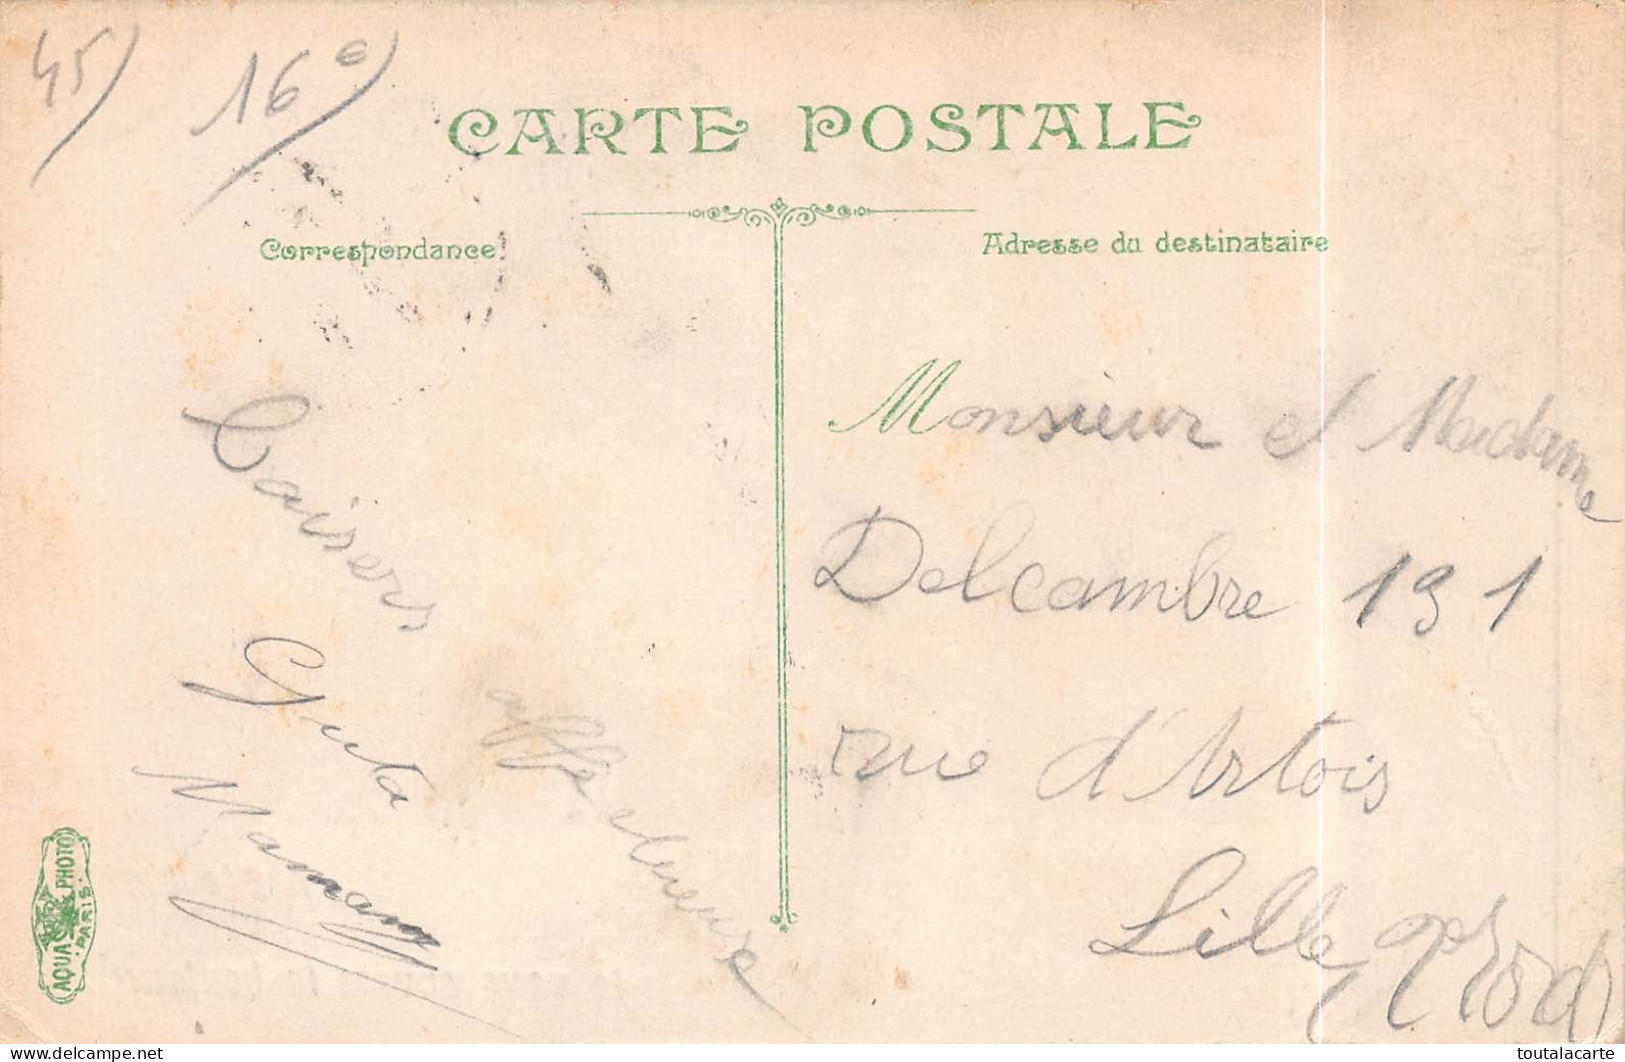 45)
16e)
CARTE POSTALE
Correspondance
Adresse du destinataire
Baisers
affectueux
Maman
Monsieur et Madame
Delcambre 191
rue d'Artois
Lille Nord
AQUA PHOTO
PARIS.
delcampe.net
toutalacarte